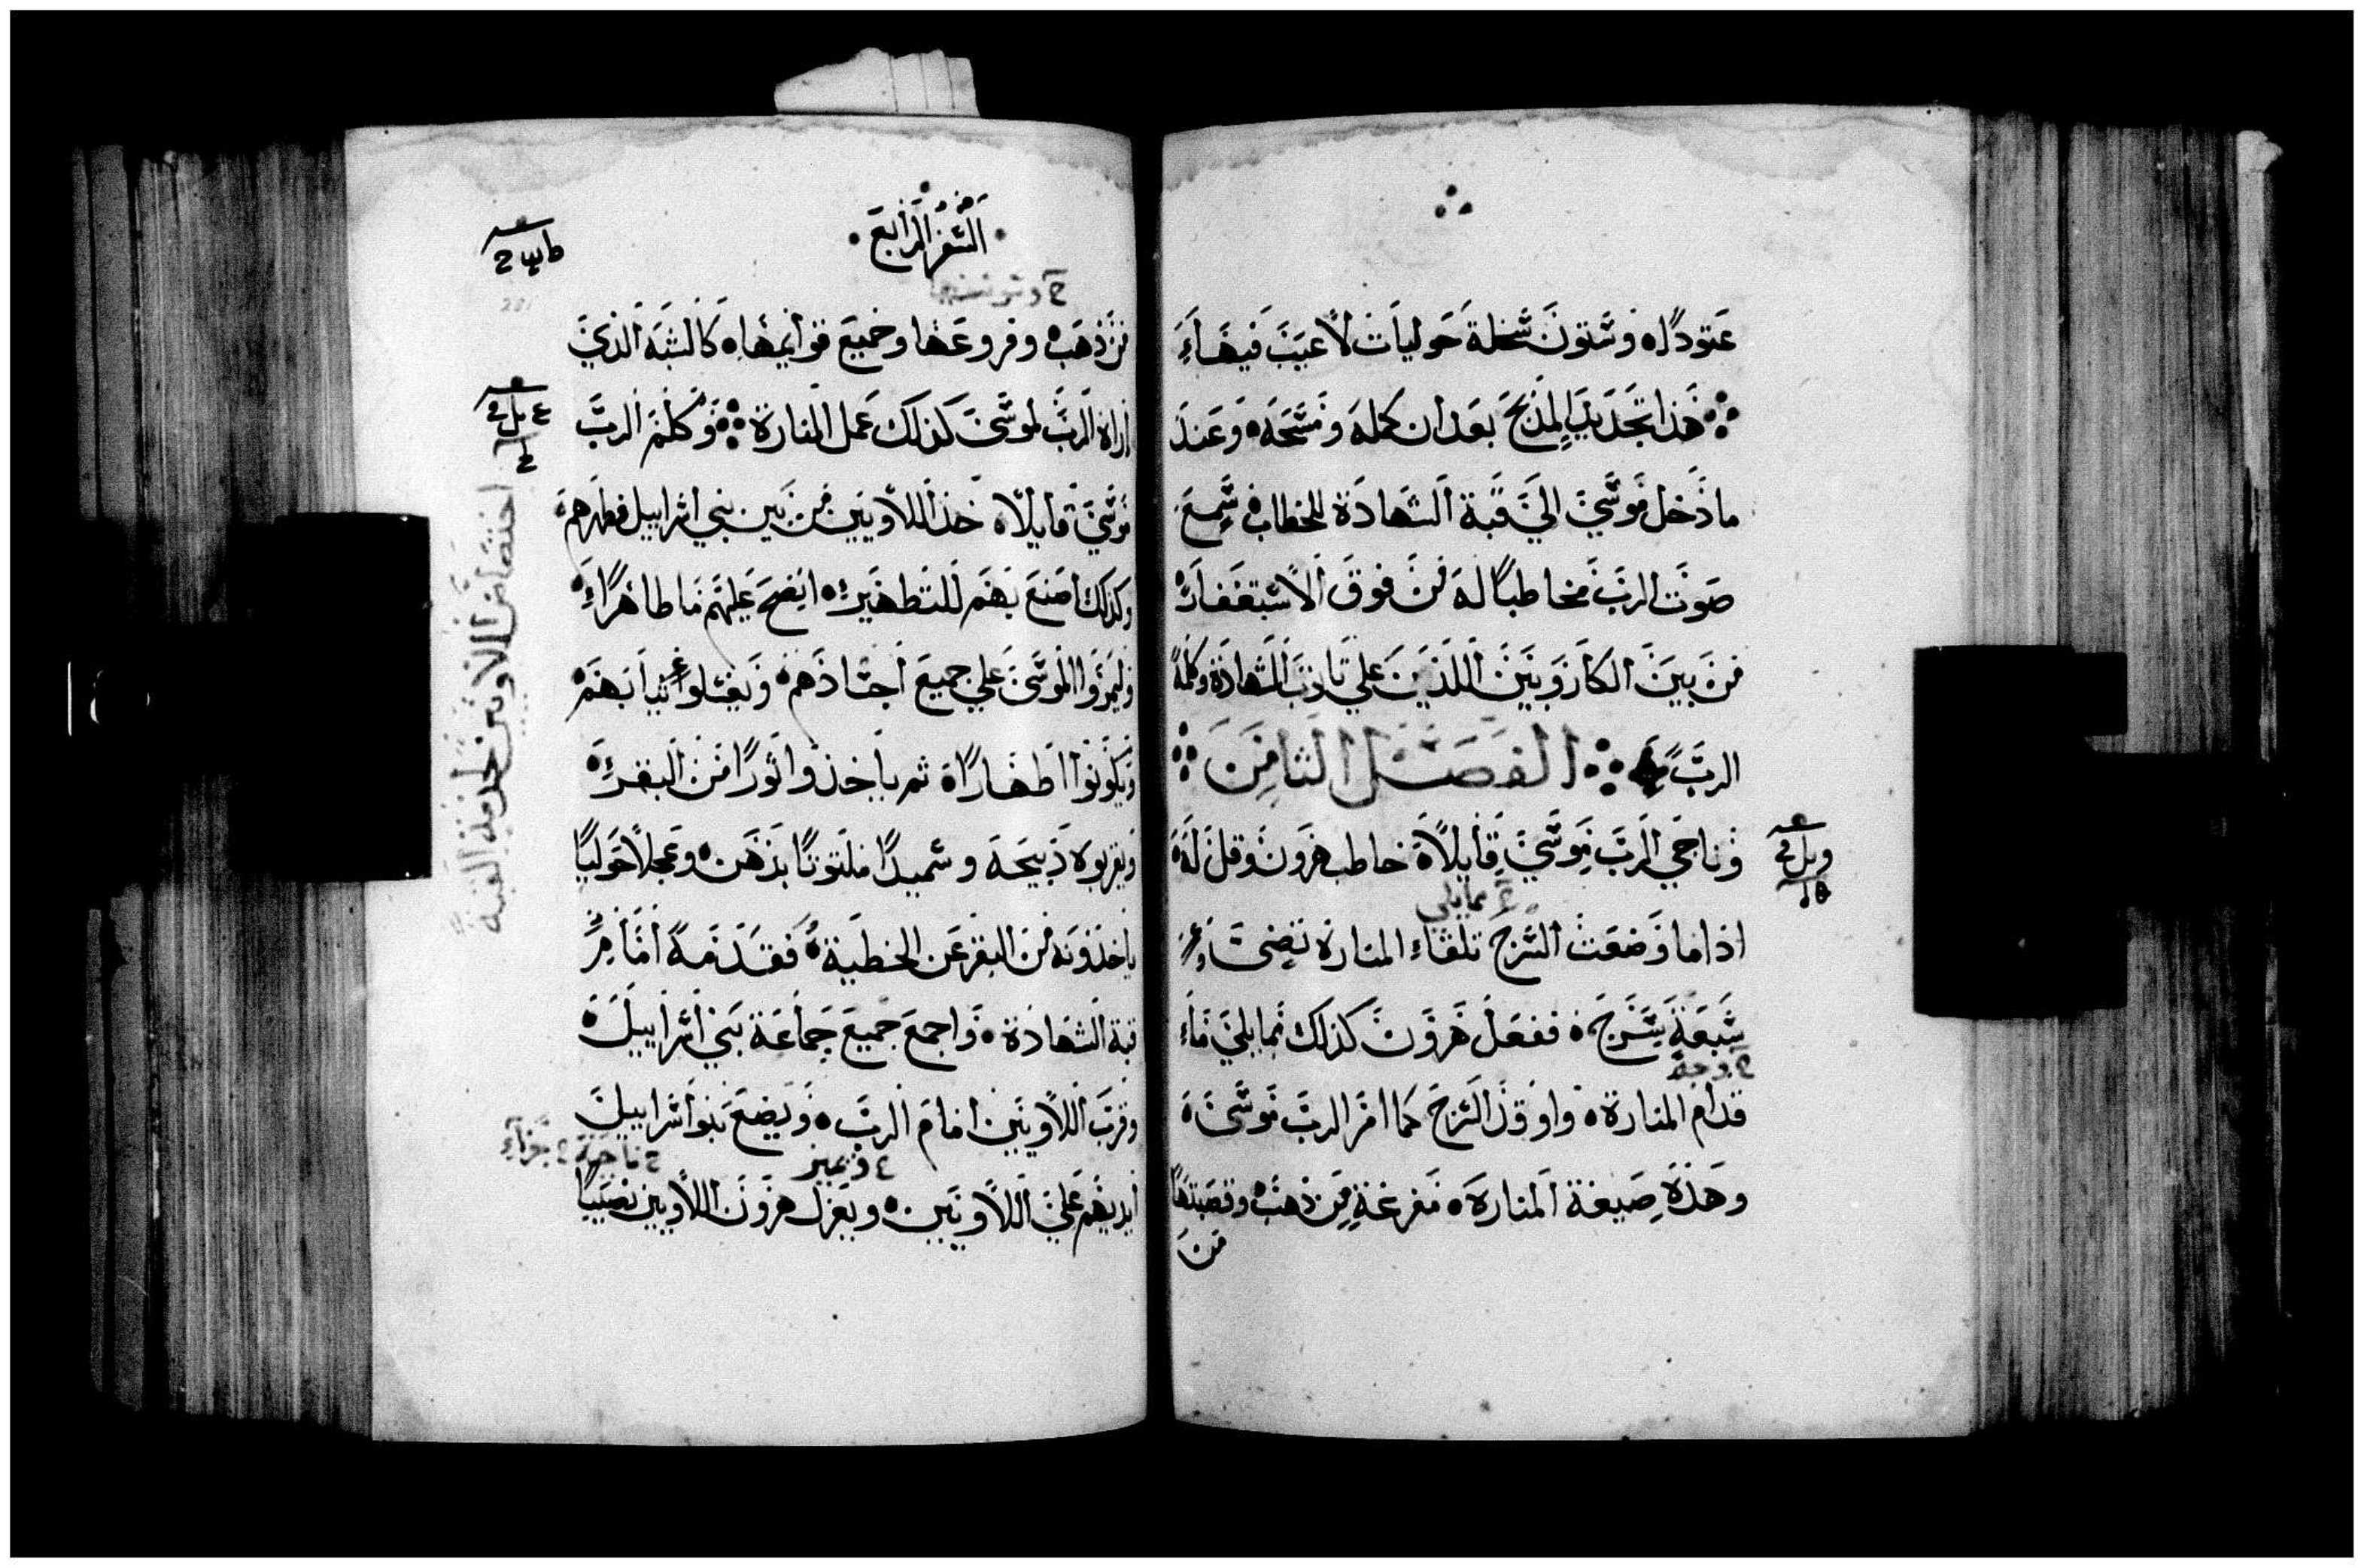 عتودًا۰ وستون سخلة حوليات لا عيب فيها۰
هذا تجديد المذبح بعد ان كمله ومسحه۰ وعند
ما دخل موسي الي قبة الشهادة للخطاب فسمع
صوت الرب مخاطبًا له من فوق الاستغفار۰
من بين الكاروبين اللذين علي تابوت الشهادة وكلمه
الرب الفصل الثامن
وناجي الرب موسي قايلاً۰ خاطب هرون وقل له۰
ع مما يلي
اذا ما وضعت السرج تلقاء المنارة تضيء
سبعة سرج۰ ففعل هرون كذلك مما يلي
ح وجه
قدام المنارة۰ واوقد السرج كما امر الرب موسي۰
وهذه صيغة المنارة۰ مفرغة من ذهب۰ وقصبتها
من
السفر الرابع
ح وسوسنها
من ذهب۰ وفروعها وجميع قوايمها۰ كالشبه الذي
اراه الرب لموسي كذلك عمل المنارة وكلم الرب
موسي قايلاً۰ خذ اللاويين من بين بني اسراييل فطهرهم۰
وكذلك اصنع بهم للتطهير۰ انضح عليهم ما طاهرًا۰
وليمروا الموسي علي جميع اجسادهم۰ ويغسلوا ثيابهم۰
ويكونوا اطهارًا۰ ثم ياخذوا ثورًا من البقر۰
ويقربوه ذبيحة وسميدًا ملتوتًا بدهن۰ وعجلاً حوليًا
ياخذونه من البقر عن الخطية۰ فقدمه امام
قبة الشهادة۰ واجمع جميع جماعة بني اسراييل۰
وقرب اللاويين امام الرب۰ ويضع بنوا اسراييل
ع ويميز ح ناحية ع جزاء
ايديهم علي اللاويين۰ ويعزل هرون اللاويين نصيبًا
اختصاص اللاويين لخدمة القبة